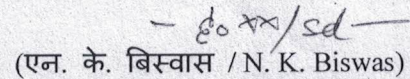 - ह० xx/sd -
(एन. के. बिस्वास / N. K. Biswas)